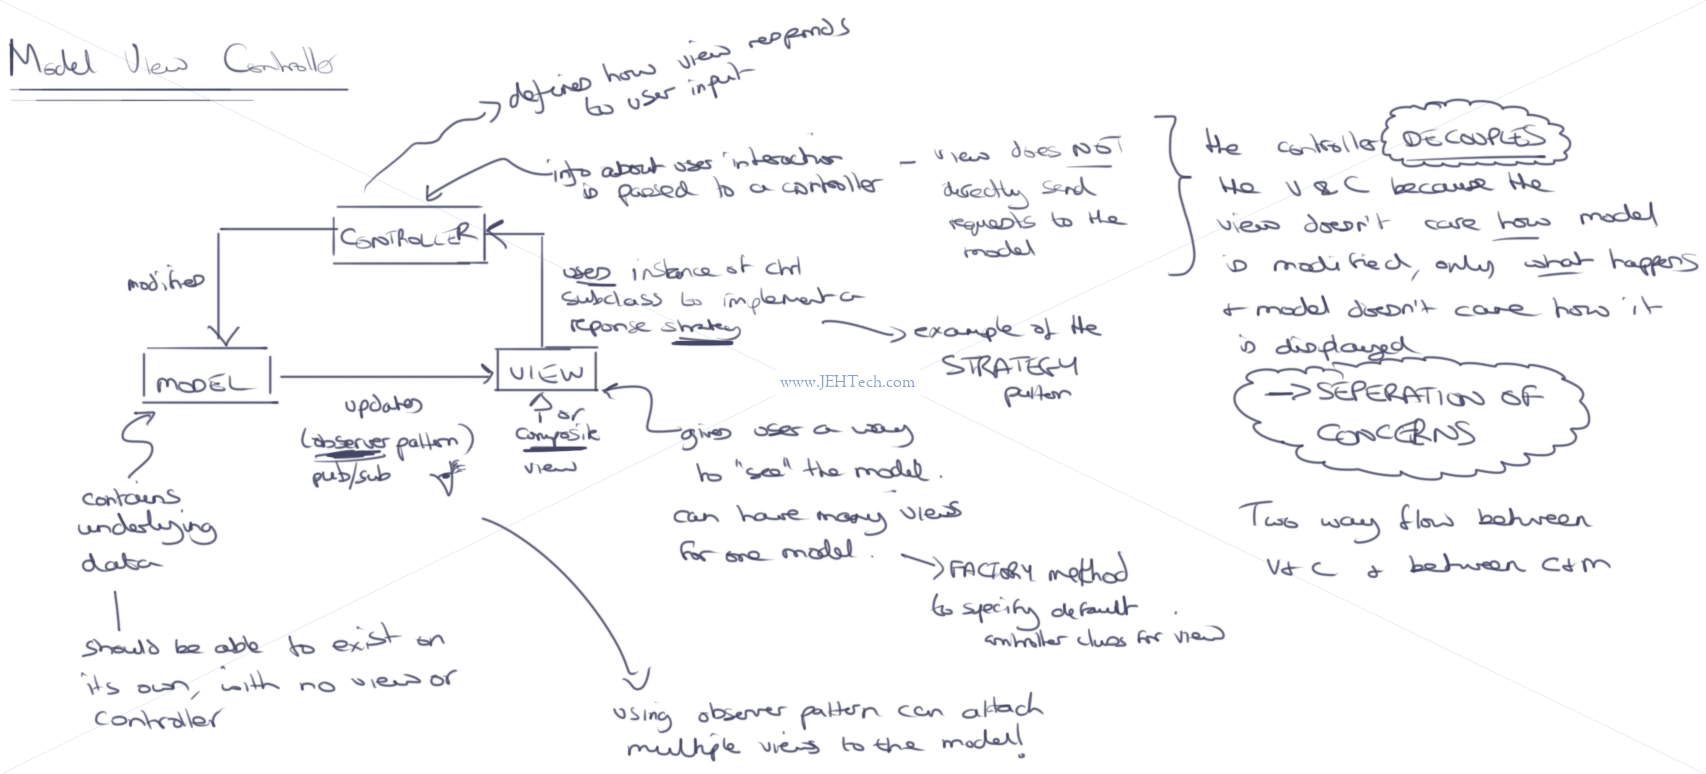 Model View Controller
defines how view responds
to user input
info about user interaction
is passed to a controller
- view does NOT
directly send
requests to the
model
the controller DECOUPLES
the V & C because the
view doesn't care how model
is modified, only what happens
+ model doesn't care how it
is displayed
→ SEPERATION OF
CONCERNS
Two way flow between
V + C + between C+M
CONTROLLER
modifies
uses instance of ctrl
subclass to implement a
reponse strategy
→ example of the
STRATEGY
pattern
MODEL
VIEW
www.JEHTech.com
updates
(observer pattern)
pub/sub
or
composite
view
gives user a way
to "see" the model.
can have many views
for one model.
→ FACTORY method
to specify default
controller class for view
contains
underlying
data
should be able to exist on
its own, with no view or
controller
using observer pattern can attach
multiple views to the model!